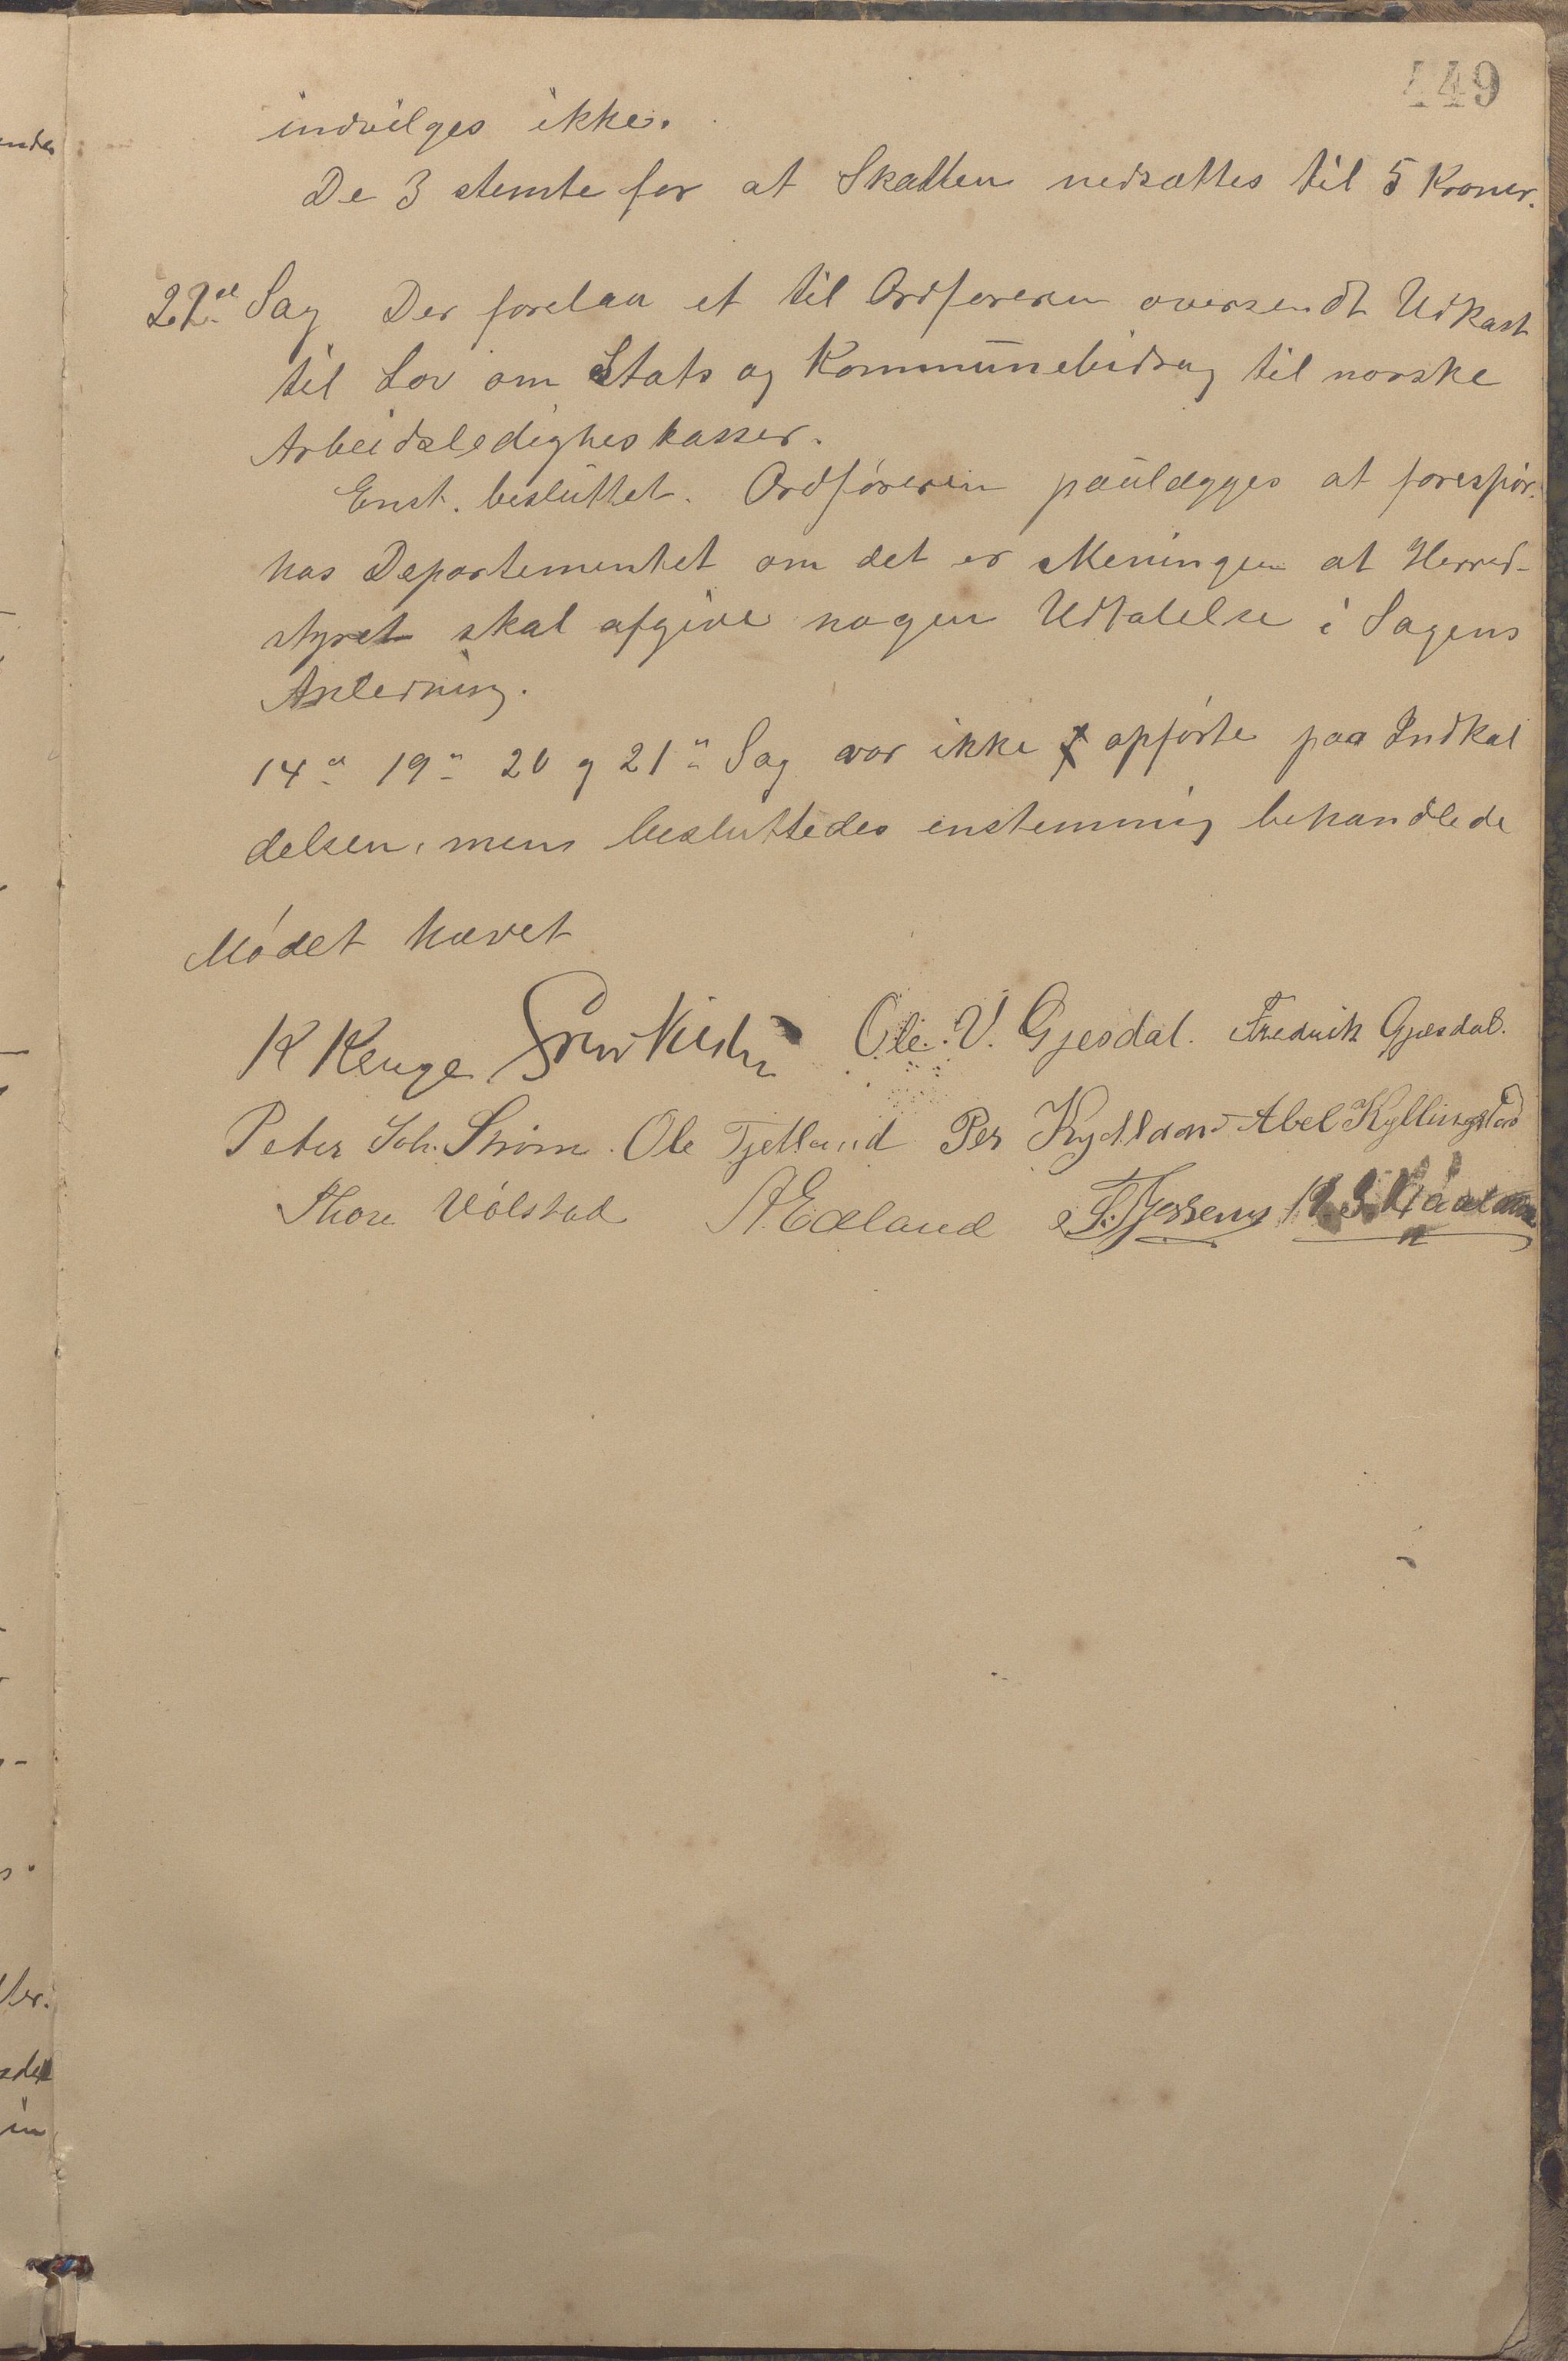 449
indvilges ikke.
De 3 stemte for at Skatten nedsættes til 5 Kroner.
22de Sag Der forelaa et til Ordføreren oversendt Udkast
til Lov om Stats og Kommunebidrag til norske
Arbeidsledigheskasser.
Enst. besluttet. Ordføreren paulægges at forespør.
hos Departementet om det er Meningen at Herred-
styret skal afgive nogen Udtalelse i Sagens
Anledning.
14de 19de 20 og 21de Sag var ikke opførte paa Indkal
delsen, mens besluttedes enstemmig behandlede
Mødet hævet
K Kenge Ole. V. Gjesdal. Fredrik Gjesdal.
Peter Joh. Strøm. Ole Tjetland Per Kydland Abel Kyllingstad
Thore Vølstad A. Edland